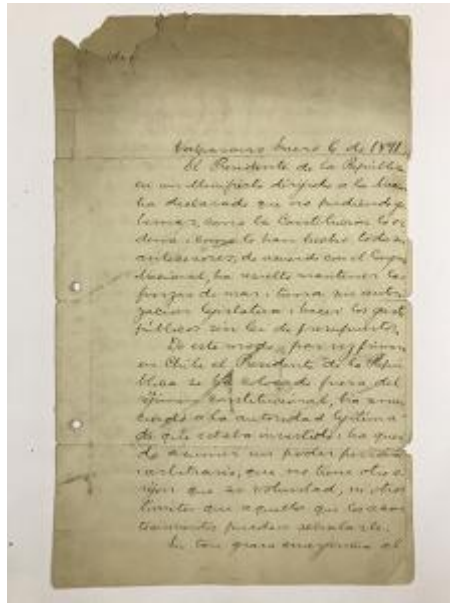 Valparaiso Enero 6 de 1891.
El Presidente de la República
en un Manifiesto dirijido a la
ha declarado que no pudiendo
como la Constitucion lo or
dena i como lo han hecho todos
antecesores, de acuerdo con el
Nacional, ha resuelto mantener las
fuerzas de mar i tierra sin auto
rizacion lejislativa i hacer los gast
públicos sin lei de presupuestos.
De este modo, por
en Chile el Presidente de la Repú
blica se ha colocado fuera del
réjimen constitucional, ha renun
ciado a la autoridad lejítima
de que estaba investido i ha queri
do asumir un poder
arbitrario, que no tiene otro o
ríjen que su voluntad, ni otros
límites que aquellos que los acon
tecimientos puedan señalarle.
En tan grave emerjencia al